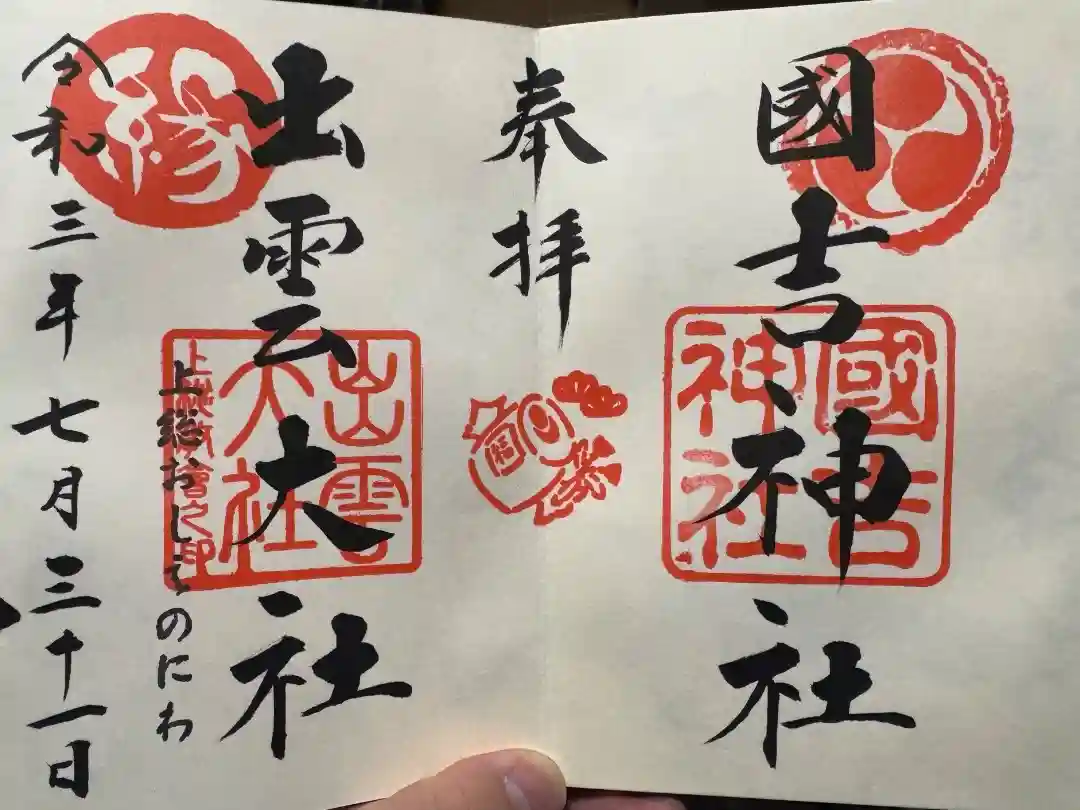 國吉神社
國吉
神社
奉拝
出雲大社
縁
出雲
大社
上総おしえのにわ
令和三年七月三十一日